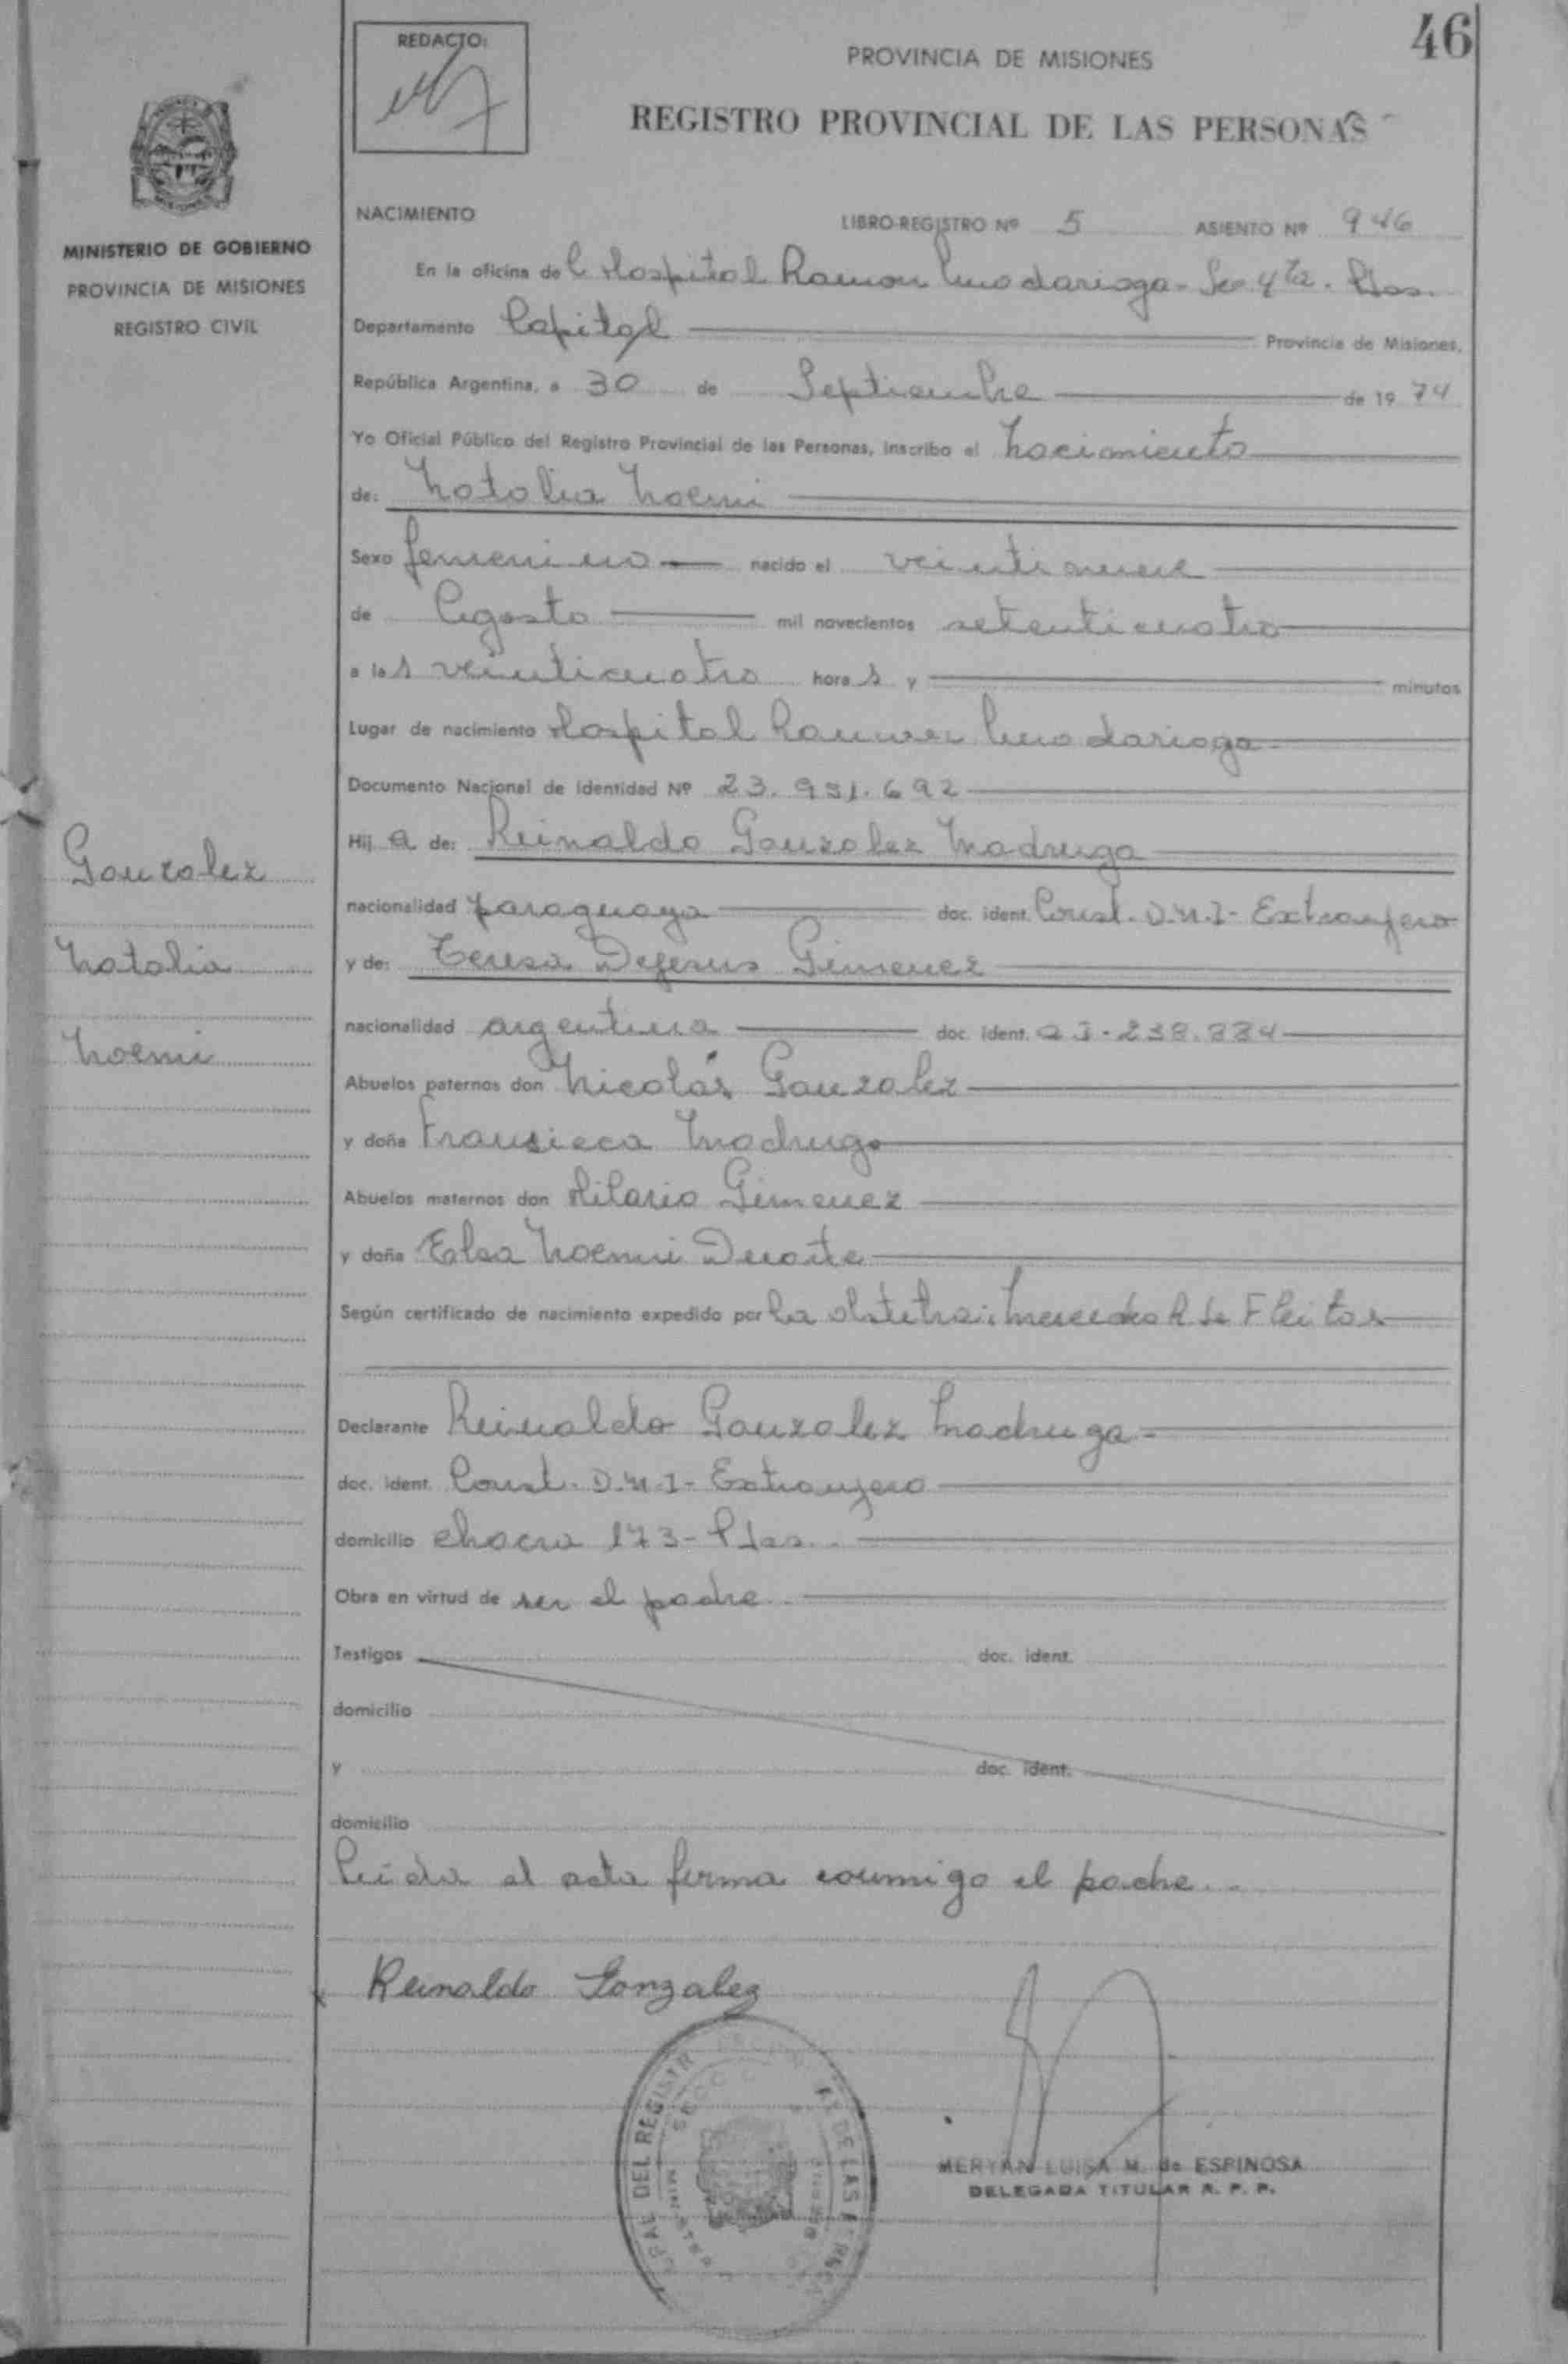 46
REDACTO:
PROVINCIA DE MISIONES
REGISTRO PROVINCIAL DE LAS PERSONAS
MINISTERIO DE GOBIERNO
PROVINCIA DE MISIONES
REGISTRO CIVIL
Gonzalez
Natalia
Noemi
NACIMIENTO LIBRO-REGISTRO Nº 5 ASIENTO Nº 946
En la oficina del Hospital Ramon - Sec 4ta. Pdas.
Departamento Capital Provincia de Misiones,
República Argentina, a 30 de Septiembre de 1974
Yo Oficial Público del Registro Provincial de las Personas, inscribo el Nacimiento
de: Natalia Noemi
Sexo femenino nacido el veintinueve
de Agosto mil novecientos setenticuatro
a las veinticuatro horas y minutos
Lugar de nacimiento Hospital Ramon
Documento Nacional de Identidad Nº 23.951.692
Hija de: Reinaldo Gonzalez Madruga
nacionalidad paraguaya doc. ident. Const. D.N.I- Extranjero
y de: Teresa Dejesus Gimenez
nacionalidad argentina doc. ident.
Abuelos paternos don Nicolás Gonzalez
y doña Fransisca Madruga
Abuelos maternos don Hilario Gimenez
y doña Elsa Noemi Duarte
Según certificado de nacimiento expedido por la obstetra: Mercedes R de Fleitas
Declarante Reinaldo Gonzalez Madruga-
doc. ident. Const. D.N.I- Extranjero
domicilio chacra 173- Pdas.
Obra en virtud de ser el padre
Testigos doc. ident.
domicilio
y doc. ident.
domicilio
Leida el acta firma conmigo el padre.
Reinaldo Gonzalez
MERYAN LUISA M. de ESPINOSA
DELEGADA TITULAR R. P. P.